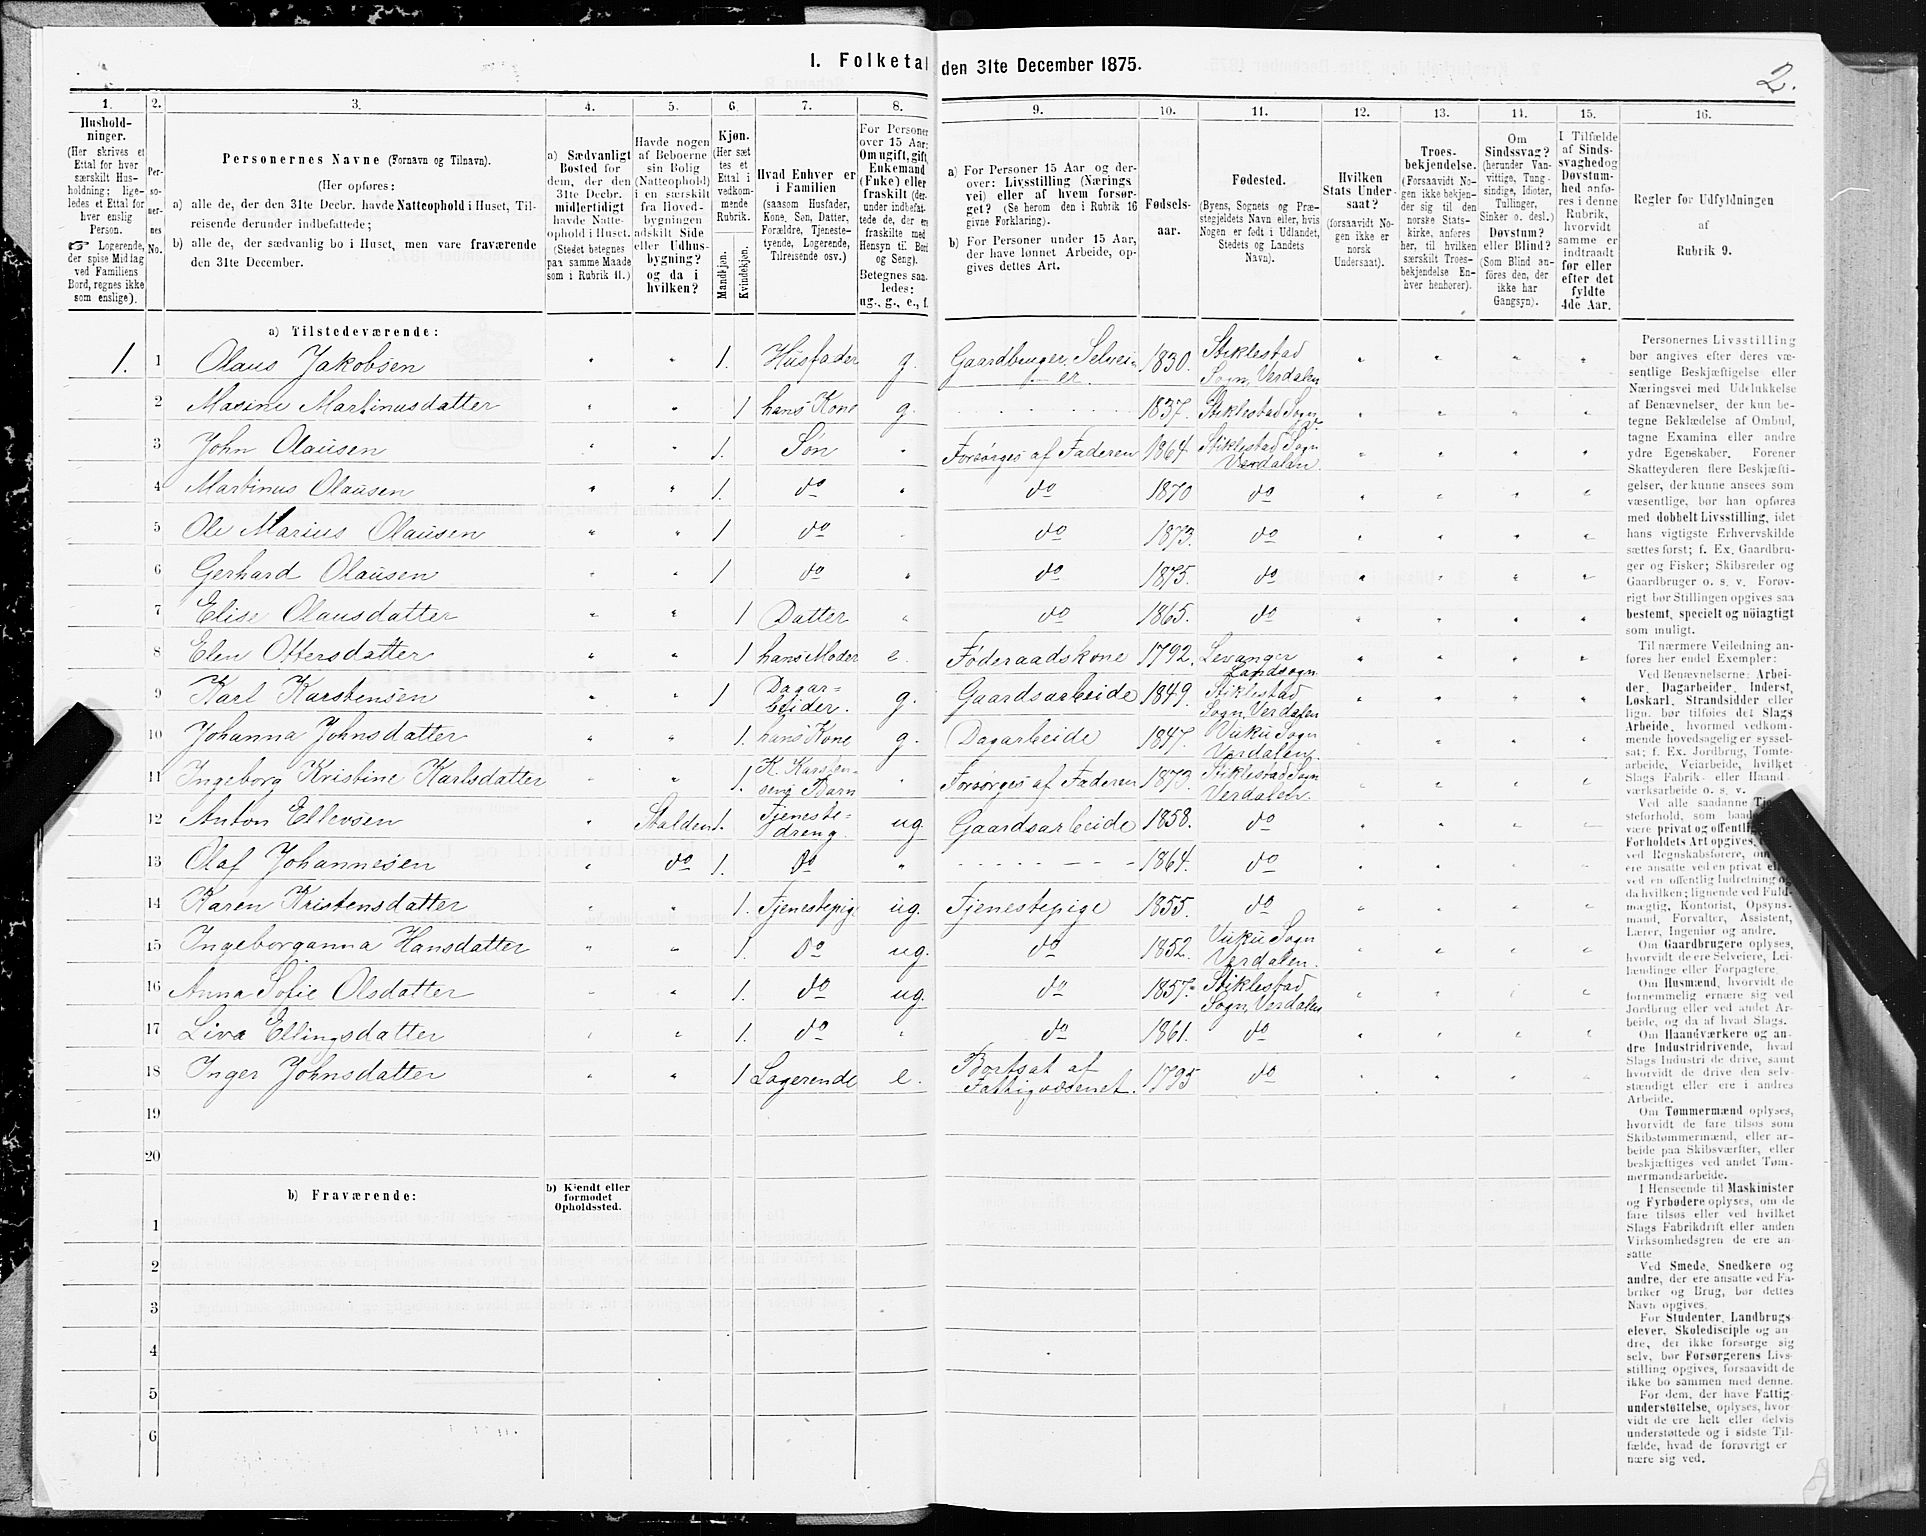 1. Folketal den 31te December 1875.
2.
1.
Hushold-
ninger.
(Her skrives et
Ettal for hver
særskilt Hus-
holdning; lige-
ledes et Ettal for
hver enslig
Person.
☞ Logerende,
der spise Middag
ved Familiens
Bord, regnes ikke
som enslige).
2.
Per-
so-
ner-
nes
No.
3.
Personernes Navne (Fornavn og Tilnavn).
(Her opføres:
a) alle de, der den 31te Decbr. havde Natteophold i Huset, Til-
reisende derunder indbefattede;
b) alle de, der sædvanlig bo i Huset, men vare fraværende
den 31te December.
4.
a) Sædvanligt
Bosted for
dem, der den
31te Decbr.
midlertidigt
havde Natte-
ophold i Huset.
(Stedet betegnes
paa samme Maade
som i Rubrik 11.)
5.
Havde nogen
af Beboerne
sin Bolig
(Natteophold)
i en særskilt
fra Hoved-
bygningen
adskilt Side
eller Udhus-
bygning?
og da i
hvilken?
6.
Kjøn.
(Her sæt
tes et
Ettal i
vedkom-
mende
Rubrik.
Mandkjøn.
Kvindekjøn.
7.
Hvad Enhver er
i Familien
(saasom Husfader,
Kone, Søn, Datter,
Forældre, Tjeneste-
tyende, Logerende,
Tilreisende osv.)
8.
For Personer
over 15 Aar:
Om ugift, gift,
Enkemand
(Enke) eller
fraskilt (der-
under indbefat-
tede de, der ere
fraskilte med
Hensyn til Bord
og Seng).
Betegnes saa-
ledes:
ug., g., e., f.
9.
a) For Personer 15 Aar og der-
over: Livsstilling (Nærings
vei) eller af hvem forsør-
get? (Se herom den i Rubrik 16
givne Forklaring).
b) For Personer under 15 Aar,
der have lønnet Arbeide, op-
gives dettes Art.
10.
Fødsels-
aar.
11.
Fødested.
(Byens, Sognets og Præ-
stegjeldets Navn eller, hvis
Nogen er født i Udlandet,
Stedets og Landets
Navn).
12.
Hvilken
Stats Under-
saat?
(forsaavidt No-
gen ikke er
norsk
Undersaat).
13.
Troes-
bekjendelse.
(Forsaavidt No-
gen ikke bekjen-
der sig til den
norske Stats-
kirke, anføres
her, til hvilken
særskilt Troes-
bekjendelse En-
hver henhører).
14.
Om
Sindssvag?
(herunder Van-
vittige, Tung-
sindige, Idioter,
Tullinger,
Sinker o. desl.)
Døvstum?
eller Blind?
(Som Blind an-
føres den, der
ikke har
Gangsyn).
15.
I Tilfælde
af Sinds-
svaghed og
Døvstum-
hed anfø-
res i denne
Rubrik,
hvorvidt
samme er
indtraadt
før eller
efter det
fyldte
4de Aar.
16.
Regler for Udfyldningen
af
Rubrik 9.
a) Tilstedeværende:
1. 1 Olaus Jakobsen " " 1. Husfader g. Gaardbruger Selvei- 1830. Stiklestad " " " "
er Sogn, Verdalen
2 Masine Martinusdatter " " 1 hans Kone g. 1837. Stiklestad Sogn " " " "
3 John Olausen " " 1. Søn " Forsørges af Faderen 1864 Stiklestad Sogn " " " "
Verdalen
4 Martinus Olausen " " 1. do " do 1870 do " " " "
5 Ole Marius Olausen " " 1 do " do 1873. do " " " "
6 Gerhard Olausen " " 1 do " do 1875. do " " " "
7 Elise Olausdatter " " 1 Datter " do 1865. do " " " "
8 Elen Ottersdatter " " 1 hans Moder e. Føderaadskone 1792. Levanger " " " "
Landsogn
9 Karl Karstensen " " 1 Dagar- g. Gaardsarbeide 1849. Stiklestad " " " "
beider. Sogn, Verdalen
10 Johanna Johnsdatter " " 1. hans Kone g. Dagarbeide 1847. Vuku Sogn " " " "
Verdalen
11 Ingeborg Kristine Karlsdatter " " 1. K. Karsten- " Forsørges af Faderen 1873. Stiklestad Sogn " " " "
sens Barn Verdalen.
12 Anton Ellevsen " Stalden 1. Tjeneste- ug. Gaardsarbeide 1858. do " " " "
dreng.
13 Olaf Johannesen " do 1. do " 1864. do " " " "
14 Karen Kristensdatter " " 1. Tjenestepige ug. Tjenestepige 1855. do " " " "
15 Ingeborganna Hansdatter " " 1. do ug. do 1852. Vuku Sogn " " " "
Verdalen.
16 Anna Sofie Olsdatter " " 1. do ug. do 1857. Stiklestad " " " "
Sogn, Verdalen
17 Liva Ellingsdatter " " 1. do " do 1861. do " " " "
18 Inger Johnsdatter " " 1 Logerende e. Bortsat af 1795 do " " " "
Fattigvæsenet.
19
20
b) Fraværende:
b) Kjendt eller
formodet
Opholdssted.
1
2
3
4
5
6
Personernes Livsstilling
bør angives efter deres væ-
sentlige Beskjæftigelse eller
Næringsvei med Udelukkelse
af Benævnelser, der kun be-
tegne Beklædelse af Ombud,
tagne Examina eller andre
ydre Egenskaber. Forener
Skatteyderen flere Beskjæfti-
gelser, der kunne ansees som
væsentlige, bør han opføres
med dobbelt Livsstilling, idet
hans vigtigste Erhvervskilde
sættes først; f. Ex. Gaardbru-
ger og Fisker; Skibsreder og
Gaardbruger o. s. v. Forøv-
rigt bør Stillingen opgives saa
bestemt, specielt og nöiagtigt
som muligt.
Til nærmere Veiledning an-
føres her endel Exempler:
Ved Benævnelserne: Arbei-
der, Dagarbeider, Inderst,
Løskarl, Strandsidder eller
lign. bør tilføies det Slags
Arbeide, hvormed vedkom-
mende hovedsagelig er syssel-
sat; f. Ex. Jordbrug, Tomte-
arbeide, Veiarbeide, hvilket
Slags Fabrik- eller Haand-
værksarbeide o. s. v.
Ved alle saadanne
steforhold, som baade
være privat og offentlig
Forholdets Art opgives,
ved Regnskabsførere, om
ere ansatte ved en privat
ved en offentlig Indretning og
da hvilken; lignende ved Fuld-
mægtig, Kontorist, Opsyns-
mand, Forvalter, Assistent,
Lærer, Ingeniør og andre.
Om Gaardbrugere oplyses,
hvorvidt de ere Selveiere, Lei-
lændinge eller Forpagtere.
Om Husmænd, hvorvidt de
fornemmelig ernære sig ved
Jordbrug eller ved andet Ar-
beide, og da af hvad Slags.
Om Haandværkere og an-
dre Industridrivende, hvad
Slags Industri de drive, samt
hvorvidt de drive den selv-
stændigt eller ere i andres
Arbeide.
Om Tømmermænd oplyses,
hvorvidt de fare tilsøs som
Skibstømmermænd, eller ar-
beide paa Skibsværfter, eller
beskjæftiges ved andet Tøm-
mermandsarbeide.
I Henseende til Maskinister
og Fyrbødere oplyses, om de
fare tilsøs eller ved hvilket
Slags Fabrikdrift eller anden
Virksomhedsgren de ere an-
satte
Ved Smede, Snedkere og
andre, der ere ansatte ved Fa-
briker og Brug, bør dettes
Navn opgives.
For Studenter, Landbrugs-
elever, Skoledisciple og an-
dre, der ikke forsørge sig
selv, bør Forsørgerens Livs-
stilling opgives, forsaavidt de
ikke bo sammen med denne.
For dem, der have Fattig-
understøttelse, oplyses, hvor-
vidt de ere helt eller delvis
understøttede og i sidste Til-
fælde, hvad de forøvrigt er
nære sig ved.